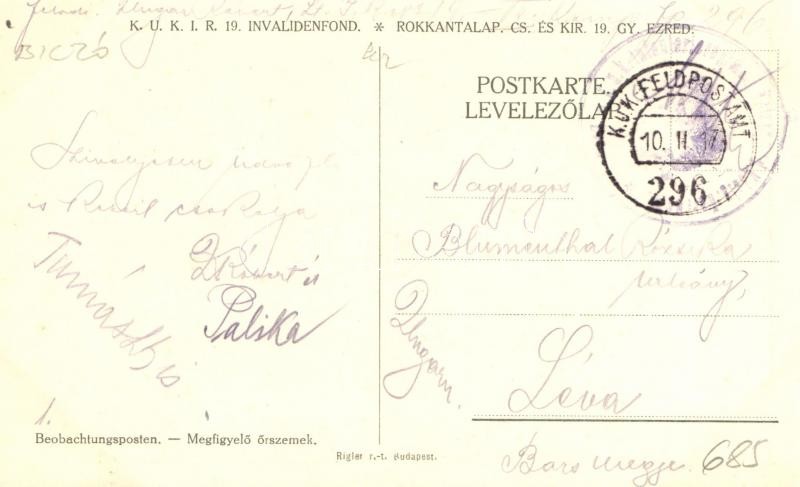 Feladó:
K. U. K. I. R. 19. INVALIDENFOND. * ROKKANTALAP. CS. ÉS KIR. 19. GY. EZRED.
BICZÓ
POSTKARTE.
LEVELEZŐLAP
K.U.K. FELDPOSTAMT
10. II. 17
296
Szivélyesen üdvözli
és Kezeit csókolja
és
Palika
is
Nagyságos
Blumenthal Rózsika
urleány,
Ungarn.
Léva
Bars megye.
685
1.
Beobachtungsposten. — Megfigyelő őrszemek.
Rigler r.-t. Budapest.